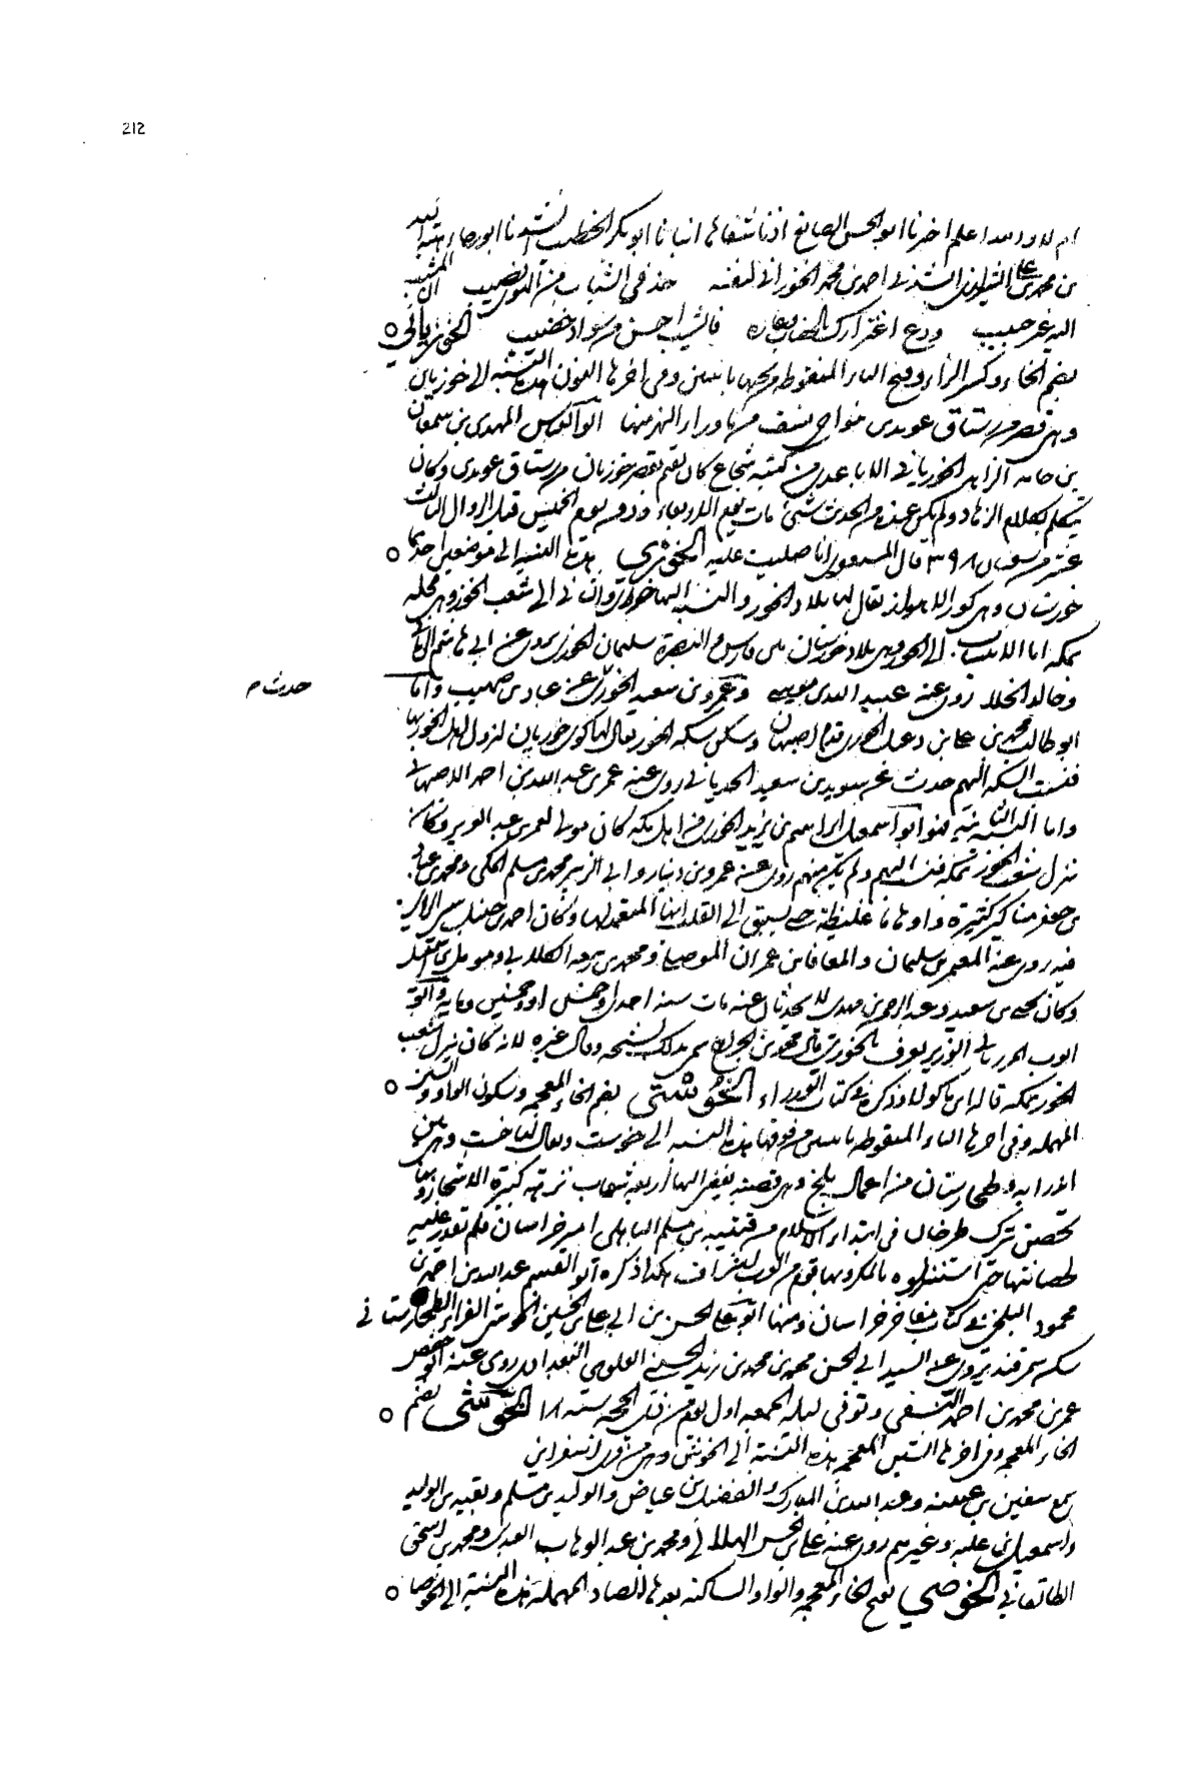 212
ام لا والله اعلم اخبرنا ابو الحسن الصايغ اذنا شفاها انبانا ابو بكر الخطيب انشدنا ابو رجا هبة الله
بن محمد بن علي الشيرازي انشدني احمد بن محمد الخوزاني لنفسه خذ في الشباب من الهوى بنصيب ان المشيب
اليه غير حبيب ودع اغترارك بالخضاب وعاره فالشيب احسن من سواد خضيب الخوزياني
بضم الخاء وكسر الزاء وفتح الياء المنقوطة من تحتها باثنتين وفي اخرها النون هذه النسبة الى خوزيان
وهي قصر من رستاق عوبدى بنواحي نسف مما وراء النهر منها ابو العباس المهدي بن سمعان
بن حامد الزاهد الخوزياني الابا عدى من كتبه شجاع كان يقيم بقصر خوزيان من رستاق عوبدى وكان
يتكلم بكلام الزهاد ولم يكن عنده من الحديث شيء مات يوم الاربعاء ودفن يوم الخميس قبل الزوال الثالث
عشر من شعبان ٣٩٨ قال المستغفري انا صليت عليه الخوزي هذه النسبة الى موضعين احدهما
خوزستان وهي كور الاهواز يقال لها بلاد الخوز والنسبة اليها خوزي والثاني الى شعب الخوز وهي محلة
بمكة اما الانتساب الى الخوز وهي بلاد خوزستان بين فارس والبصرة سليمان الخوزي يروي عن ابي هاشم الرماني
وخالد الحذاء روى عنه عبيد الله بن موسى وعمرو بن سعيد الخوزي عن عباد بن صهيب واما
حدث م
ابو طالب محمد بن علي بن دعبل الخوزي قدم اصبهان وسكن سكة الخوز يقال لها كوى خوزيان لنزول اهل الخوز بها
فنسبت السكة اليهم حدث عن سويد بن سعيد الحدثاني روى عنه عمر بن عبد الله بن احمد الاصبهاني
واما النسبة الثانية فهو ابو اسمعيل ابراهيم بن يزيد الخوزي من اهل مكة كان مولى لعمر بن عبد العزيز وكان
ينزل شعب الخوز بمكة فنسب اليهم ولم يكن منهم روى عنه عمرو بن دينار وابي الزبير محمد بن مسلم المكي ومحمد بن عباد
بن جعفر مناكير كثيرة واوهاما غليظة حتى يسبق الى القلب انه المتعمد لها وكان احمد بن حنبل سيئ الراي
فيه روى عنه المعتمر بن سليمان والمعافا بن عمران الموصلي ومحمد بن ربيعة الكلابي ومومل بن اسمعيل
وكان يحيى بن سعيد وعبد الرحمن بن مهدي لا يحدثان عنه مات سنة احدى وخمسين او خمسين وماية وابو
ايوب المورياني الوزير يعرف بالخوزي قال محمد بن الجراح سمي بذلك لشحه وقال غيره لانه كان ينزل شعب
الخوز بمكة قاله ابن ماكولا وذكره في كتاب الوزراء الخوستي بضم الخاء المعجمة وسكون الواو والسين
المهملة وفي اخرها التاء المنقوطة باثنتين من فوقها هذه النسبة الى خوست ويقال لها خست وهي بين
اندرابه وطخارستان من اعمال بلخ وهي قصبة يفضي اليها اربعة شعاب نزهة كثيرة الاشجار وبها
تحصن نيزك طرخان في ابتداء الاسلام من قتيبة بن مسلم الباهلي امير خراسان فلم يقدر عليه
لحصانتها حتى استنزلوه بالمكر وبها قوم من العرب اشراف هكذا ذكره ابو القسم عبد الله بن احمد بن
محمود البلخي في كتاب مفاخر خراسان ومنها ابو علي الحسن بن ابي علي بن الحسين الخوستي الفراء الطخارستاني
سكن سمرقند يروي عن السيد ابي الحسن محمد بن محمد بن زيد الحسيني العلوي البغدادي روى عنه ابو حفص
عمر بن محمد بن احمد النسفي وتوفي ليلة الجمعة اول يوم من ذي الحجة سنة ١٨ الخوشي بضم
الخاء المعجمة وفي اخرها الشين المعجمة هذه النسبة الى الخوش وهي من قرى اسفراين
سمع سفين بن عيينة وعبد الله بن المبارك والفضيل بن عياض والوليد بن مسلم وبقية بن الوليد
واسمعيل بن علية وغيرهم روى عنه علي بن الحسن الهلالي ومحمد بن عبد الوهاب العبدي ومحمد بن اسحق
الطالقاني الخوصي بفتح الخاء المعجمة والواو الساكنة بعدها الصاد المهملة هذه النسبة الى الخوصا